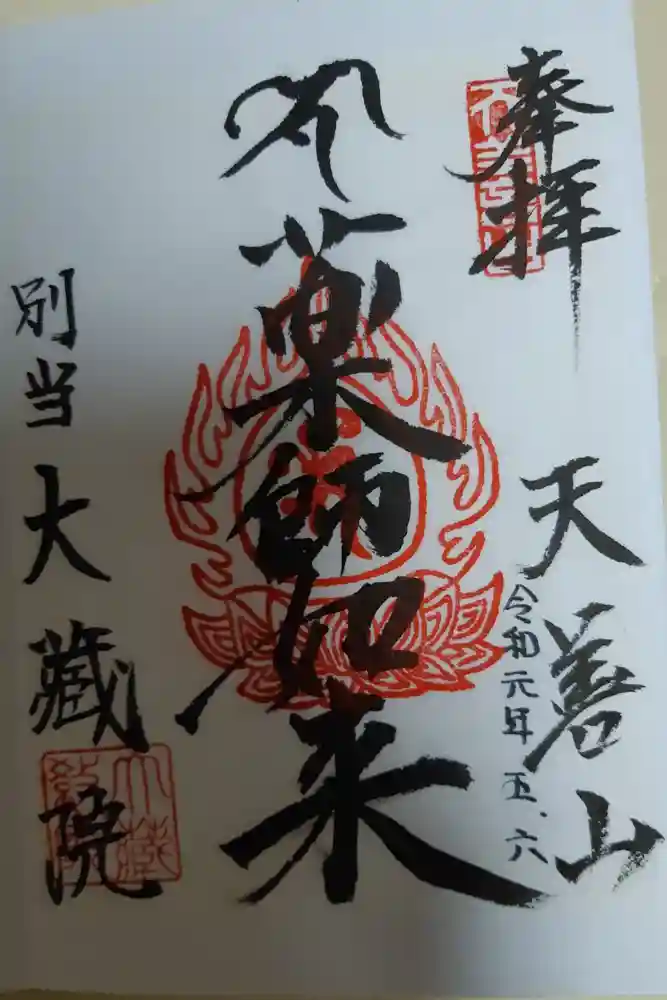 奉拝
天善山
令和元年 五.六
薬師如来
別当 大蔵院